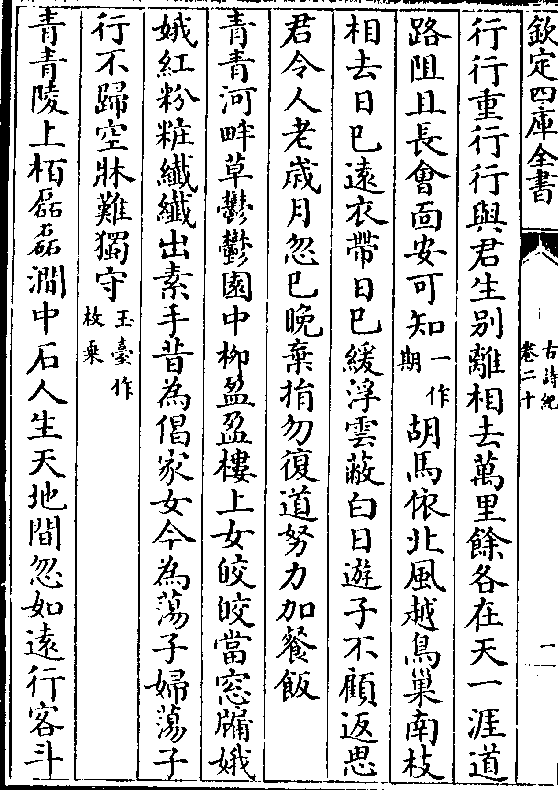 欽定四庫全書
古詩紀
卷二十
一
行行重行行與君生別離相去萬里餘各在天一涯道
路阻且長會面安可知一作期胡馬依北風越鳥巢南枝
相去日已遠衣帶日已緩浮雲蔽白日遊子不顧返思
君令人老歲月忽已晚棄捐勿復道努力加餐飯
青青河畔草鬱鬱園中柳盈盈樓上女皎皎當窓牖娥
娥紅粉粧纖纖出素手昔為倡家女今為蕩子婦蕩子
行不歸空牀難獨守玉臺作枚乗
青青陵上柏磊磊澗中石人生天地間忽如遠行客斗